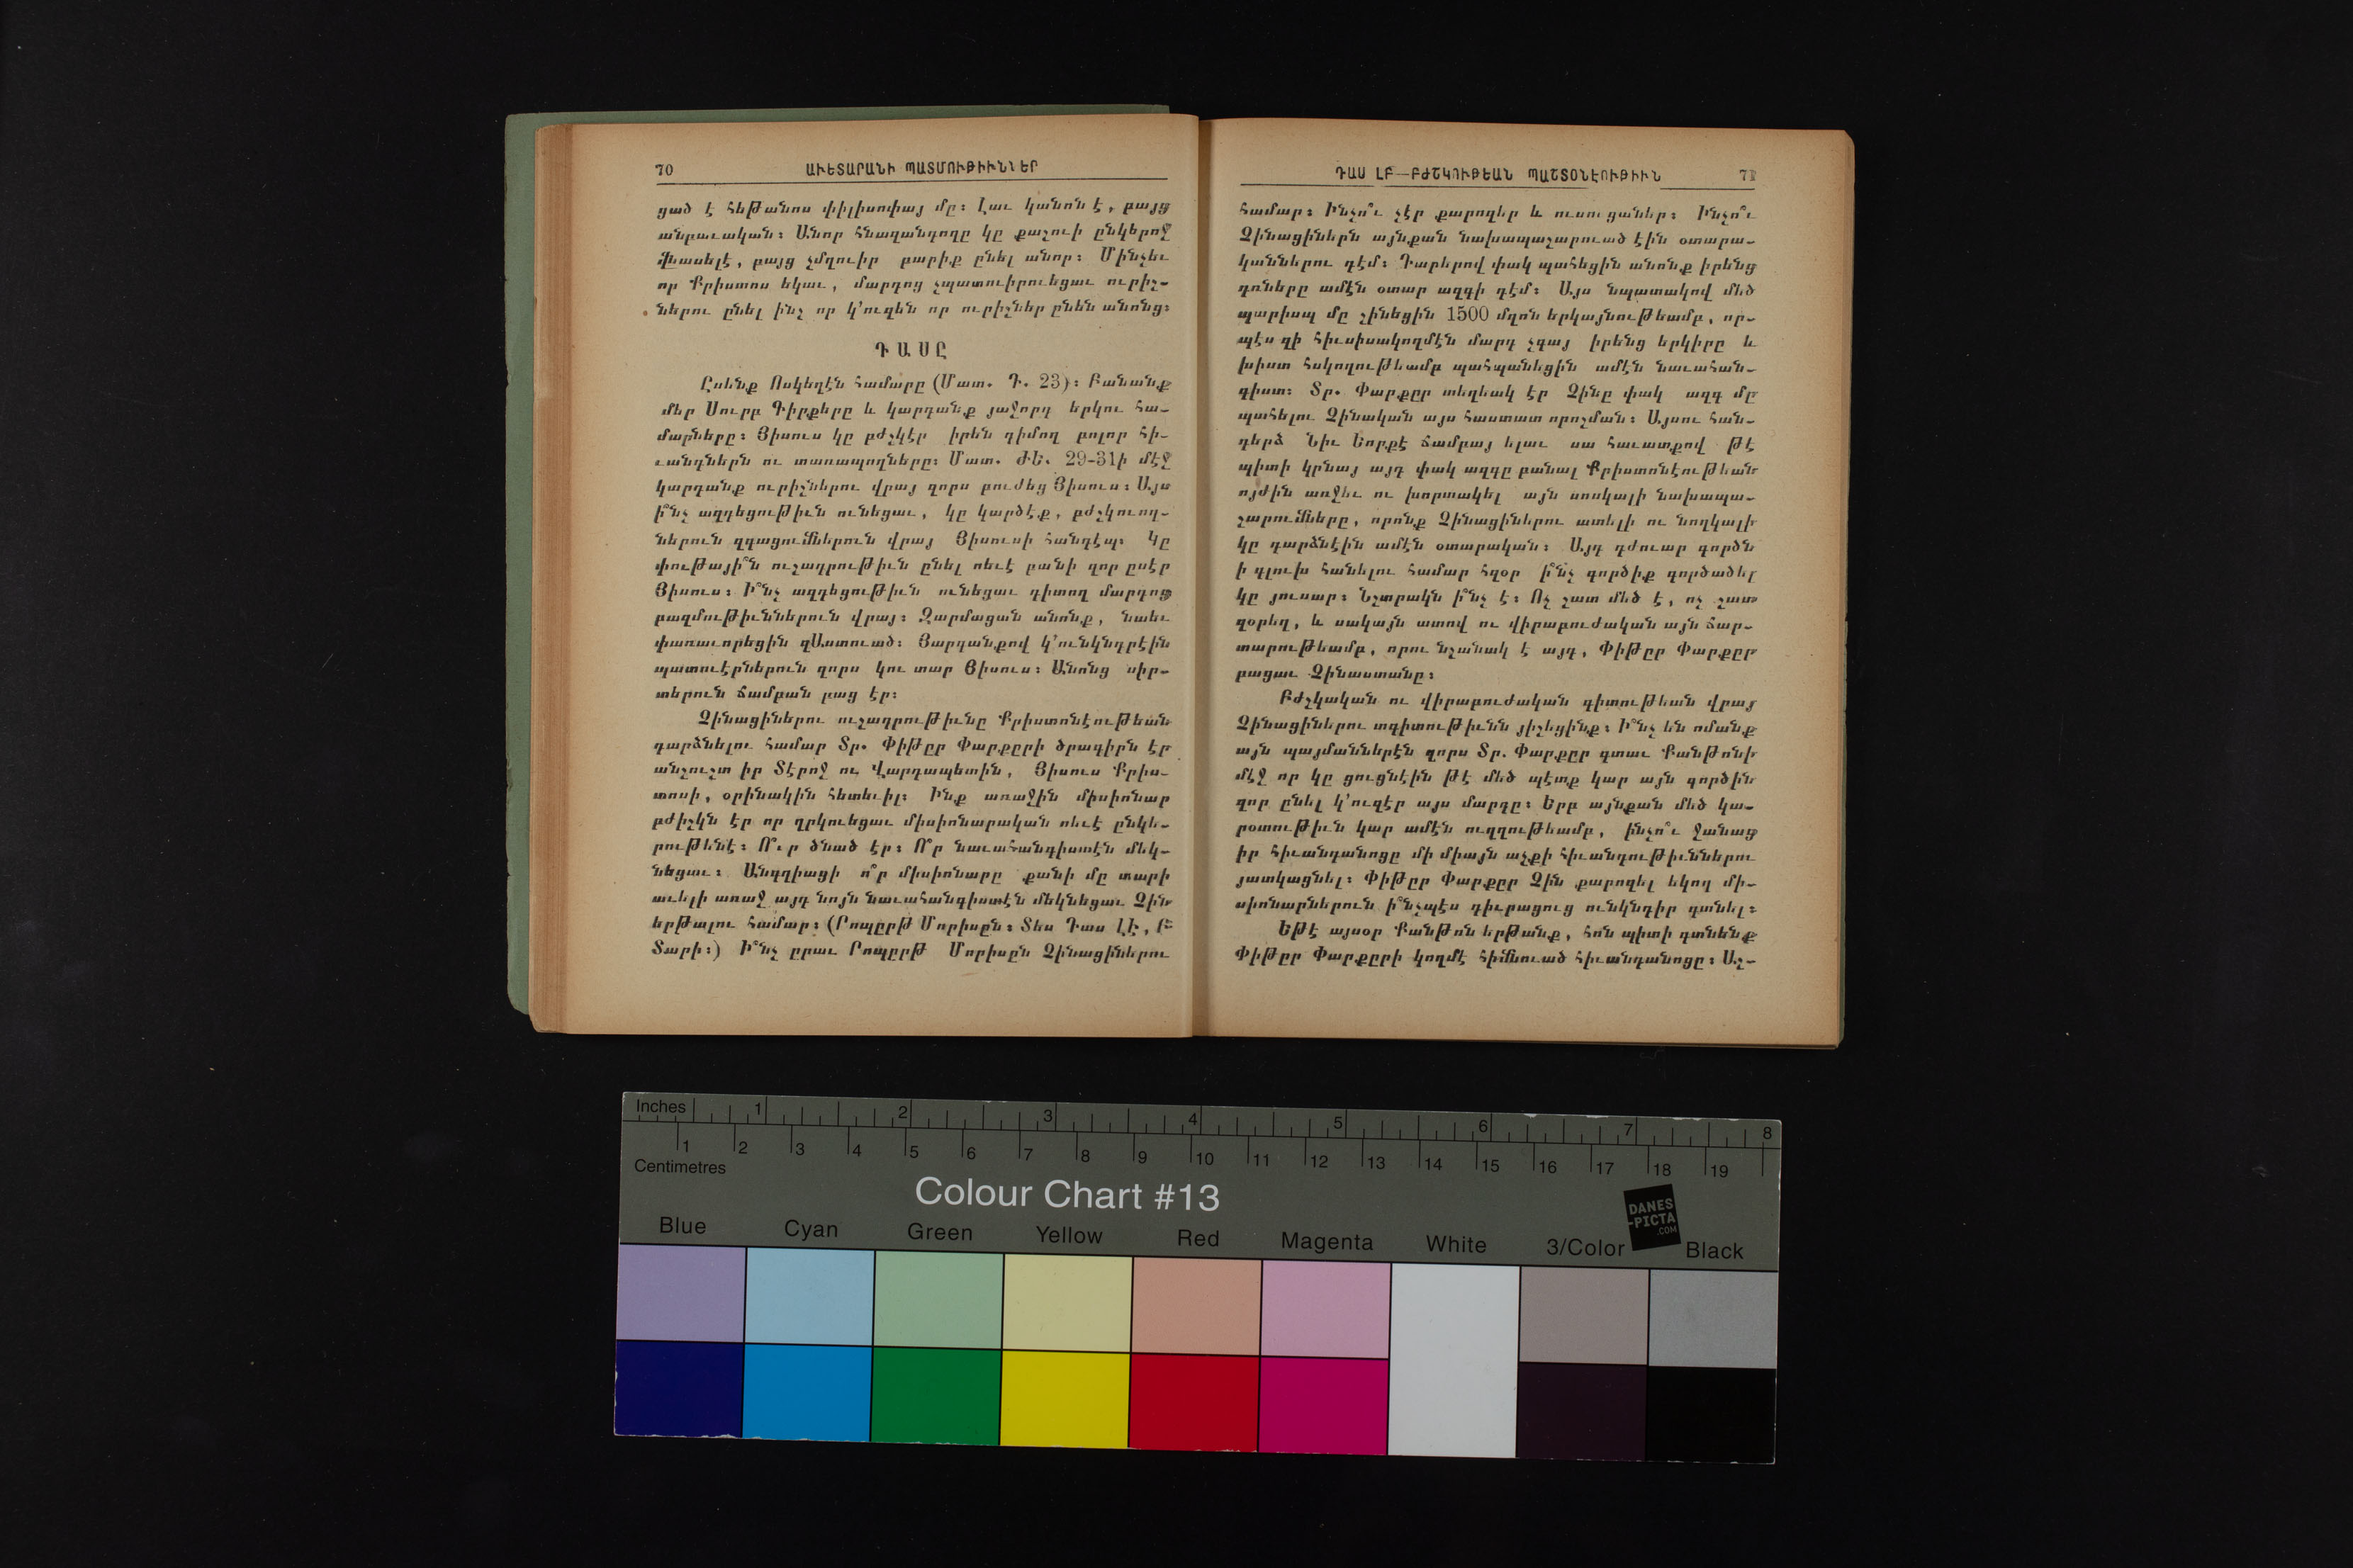 70 ԱՒԵՏԱՐԱՆԻ ՊԱՏՄՈՒԹԻՒՆՆԵՐ
ցած է հեթանոս փիլիսոփայ մը։ Լաւ կանոն է, բայց
անբաւական։ Անոր հնազանդողը կը քաշուի ընկերոջ
վնասելէ, բայց չմղուիր բարիք ընել անոր։ Մինչեւ
որ Քրիստոս եկաւ, մարդոց չպատուիրուեցաւ ուրիշ-
ներու ընել ինչ որ կ՚ուզեն որ ուրիշներ ընեն անոնց։
ԴԱՍԸ
Ըսենք Ոսկեղէն համարը (Մատ. Դ. 23)։ Բանանք
մեր Սուրբ Գիրքերը և կարդանք յաջորդ երկու հա-
մարները։ Յիսուս կը բժշկէր իրեն դիմող բոլոր հի-
ւանդներն ու տառապողները։ Մատ. ԺԵ. 29-31ի մէջ
կարդանք ուրիշներու վրայ զորս բուժեց Յիսուս։ Այս
ի՞նչ ազդեցութիւն ունեցաւ, կը կարծէք, բժշկուող-
ներուն զգացումներուն վրայ Յիսուսի հանդէպ։ Կը
փութայի՞ն ուշադրութիւն ընել ոեւէ բանի զոր ըսէր
Յիսուս։ Ի՞նչ ազդեցութիւն ունեցաւ դիտող մարդոց
բազմութիւններուն վրայ։ Զարմացան անոնք, նաեւ
փառաւորեցին զԱստուած։ Յարդանքով կ՚ունկնդրէին
պատուէրներուն զորս կու տար Յիսուս։ Անոնց սիր-
տերուն ճամբան բաց էր։
Չինացիներու ուշադրութիւնը Քրիստոնէութեան
դարձնելու համար Տր. Փիթըր Փարքըրի ծրագիրն էր
անշուշտ իր Տէրոջ ու Վարդապետին, Յիսուս Քրիս-
տոսի, օրինակին հետեւիլ։ Ինք առաջին միսիոնար
բժիշկն էր որ ղրկուեցաւ միսիոնարական ոեւէ ընկե-
րութենէ։ Ո՞ւր ծնած էր։ Ո՞ր նաւահանգիստէն մեկ-
նեցաւ։ Անգղիացի ո՞ր միսիոնարը քանի մը տարի
աւելի առաջ այդ նոյն նաւահանգիստէն մեկնեցաւ Չին
երթալու համար։ (Րոպըրթ Մորիսըն։ Տես Դաս ԼԷ, Բ
Տարի։) Ի՞նչ ըրաւ Րոպըրթ Մորիսըն Չինացիներու
ԴԱՍ ԼԲ—ԲԺՇԿՈՒԹԵԱՆ ՊԱՇՏՕՆԷՈՒԹԻՒՆ 71
համար։ Ինչո՞ւ չէր քարոզեր և ուսուցաներ։ Ինչո՞ւ
Չինացիներն այնքան նախապաշարուած էին օտարա-
կաններու դէմ։ Դարերով փակ պահեցին անոնք իրենց
դռները ամէն օտար ազգի դէմ։ Այս նպատակով մեծ
պարիսպ մը շինեցին 1500 մղոն երկայնութեամբ, որ-
պէս զի հիւսիսակողմէն մարդ չգայ իրենց երկիրը և
խիստ հսկողութեամբ պահպանեցին ամէն նաւահան-
գիստ։ Տր. Փարքըր տեղեակ էր Չինը փակ ազգ մը
պահելու Չինական այս հաստատ որոշման։ Այսու հան-
դերձ Նիւ Եորքէ ճամբայ ելաւ սա հաւատքով թէ
պիտի կրնայ այդ փակ ազգը բանալ Քրիստոնէութեան
ոյժին առջեւ ու խորտակել այն սոսկալի նախապա-
շարումները, որոնք Չինացիներու ատելի ու նողկալի
կը դարձնէին ամէն օտարական։ Այդ դժուար գործն
ի գլուխ հանելու համար հզօր ի՞նչ գործիք գործածել
կը յուսար։ Նշտրակն ի՞նչ է։ Ոչ շատ մեծ է, ոչ շատ
զօրեղ, և սակայն ատով ու վիրաբուժական այն ճար-
տարութեամբ, որու նշանակ է այդ, Փիթըր Փարքըր
բացաւ Չինաստանը։
Բժշկական ու վիրաբուժական գիտութեան վրայ
Չինացիներու տգիտութիւնն յիշեցինք։ Ի՞նչ են ոմանք
այն պայմաններէն զորս Տր. Փարքըր գտաւ Քանթոնի
մէջ որ կը ցուցնէին թէ մեծ պէտք կար այն գործին
զոր ընել կ՚ուզէր այս մարդը։ Երբ այնքան մեծ կա-
րօտութիւն կար ամէն ուղղութեամբ, ինչո՞ւ ջանաց
իր հիւանդանոցը մի միայն աչքի հիւանդութիւններու
յատկացնել։ Փիթըր Փարքըր Չին քարոզել եկող մի-
սիոնարներուն ի՞նչպէս դիւրացուց ունկնդիր գտնել։
Եթէ այսօր Քանթոն երթանք, հոն պիտի գտնենք
Փիթըր Փարքըրի կողմէ հիմնուած հիւանդանոցը։ Աշ-
Inches 1 2 3 4 5 6 7 8
1 2 3 4 5 6 7 8 9 10 11 12 13 14 15 16 17 18 19
Centimetres
Colour Chart #13
DANES
-PICTA
.COM
Blue Cyan Green Yellow Red Magenta White 3/Color Black